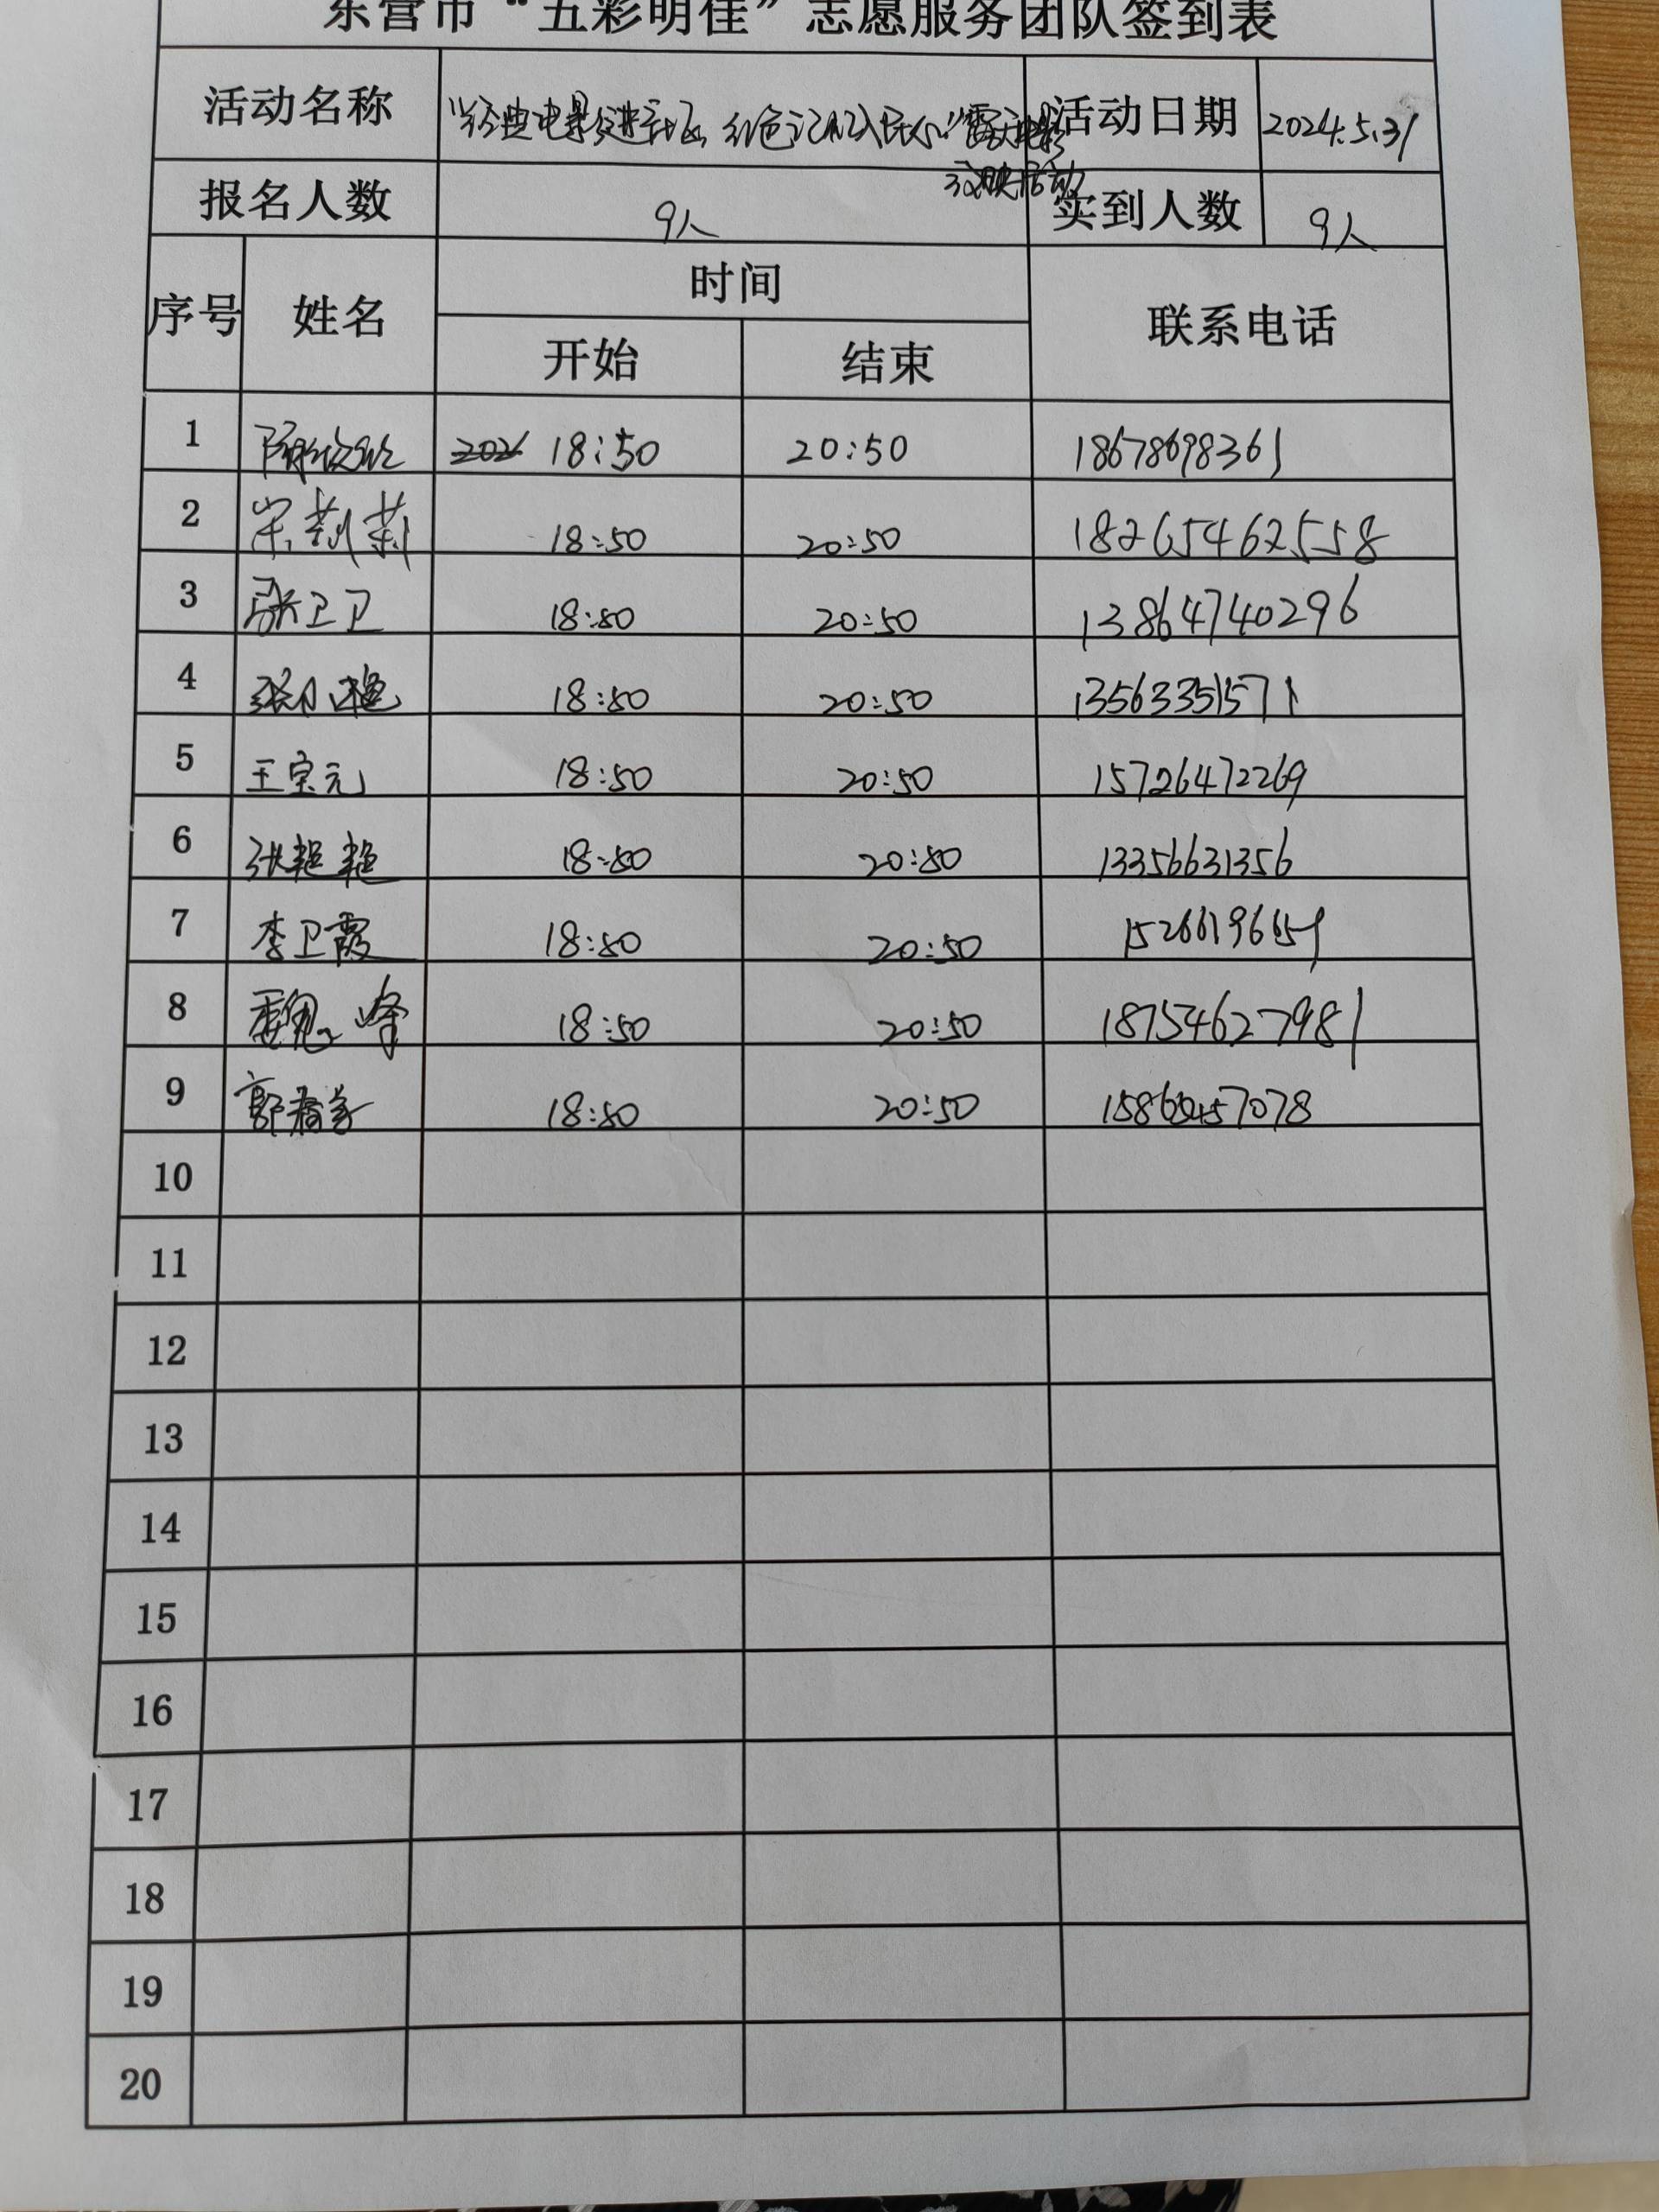 东营市“五彩明佳”志愿服务团队签到表
活动名称 “经典电影进社区 红色记忆入民心”露天电影 活动日期 2024.5.31
放映活动
报名人数 9人 实到人数 9人
序号 姓名 时间 联系电话
开始 结束
1 18:50 20:50 18678698361
2 宋莉莉 18:50 20:50 18265462558
3 张卫卫 18:50 20:50 13864740296
4 18:50 20:50 13563351571
5 王宝元 18:50 20:50 15726472269
6 张艳艳 18:50 20:50 13356631356
7 李卫霞 18:50 20:50
8 魏峰 18:50 20:50 18754627981
9 18:50 20:50
10
11
12
13
14
15
16
17
18
19
20